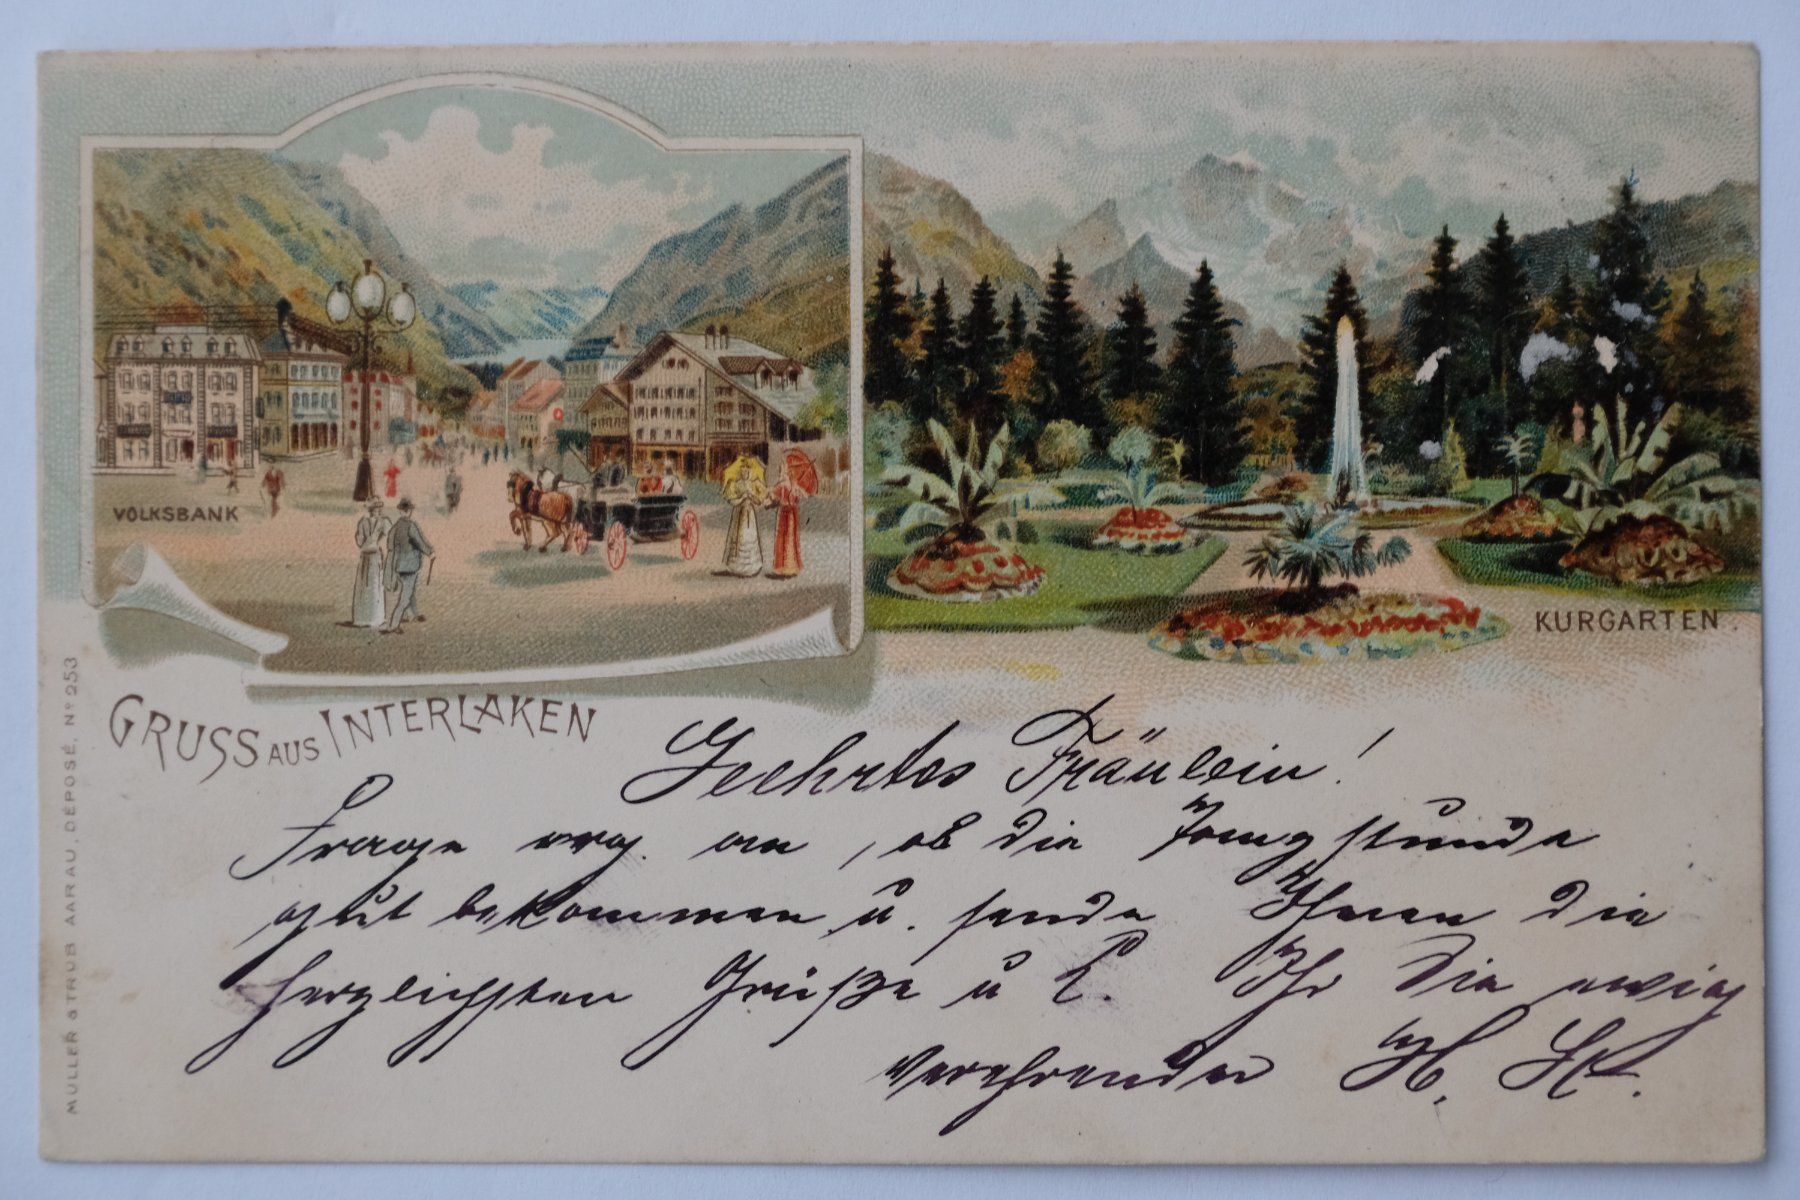 VOLKSBANK
KURGARTEN.
GRUSS AUS INTERLAKEN
MÜLLER & TRÜB AARAU, DÉPOSÉ, Nº 253
Geehrtes Fräulein!
Frage erg. an, ob die
gut bekommen u. sende Ihnen die
herzlichsten Grüße u Ihr Sie ewig
verehrender H.